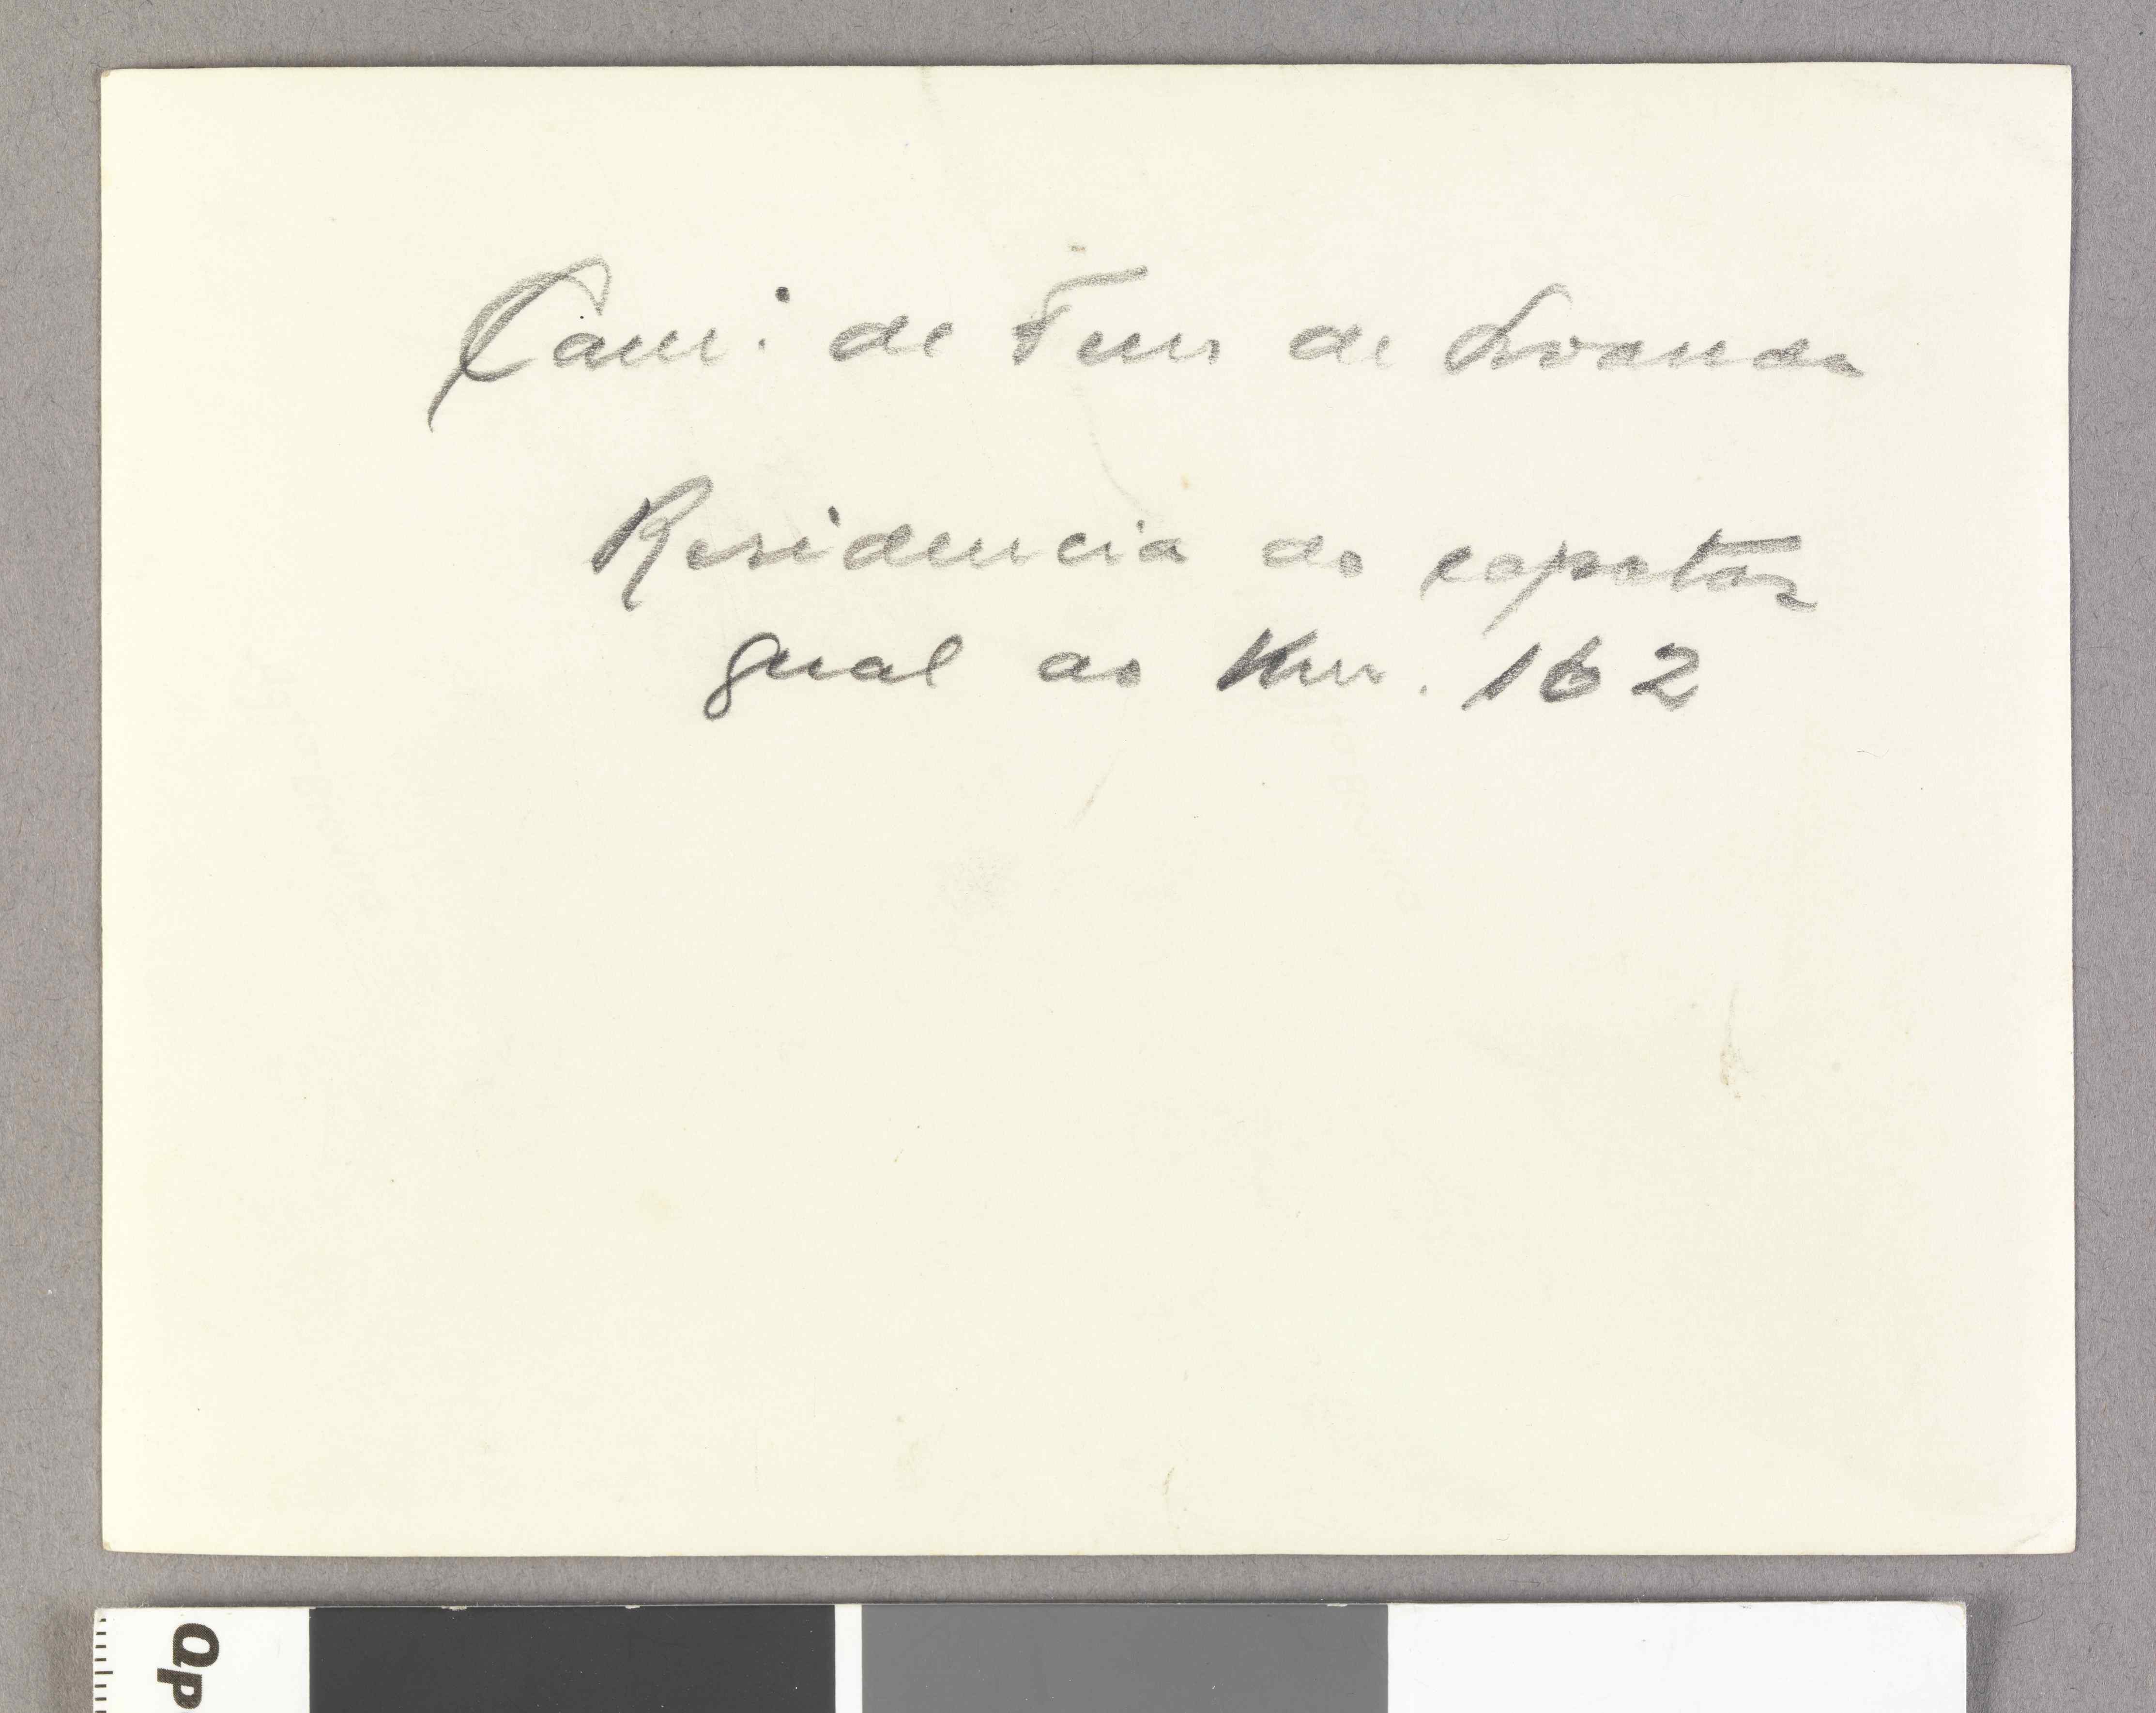 Cam: de Ferro de Loanda
Residencia do capataz
gual ao Km. 162
op